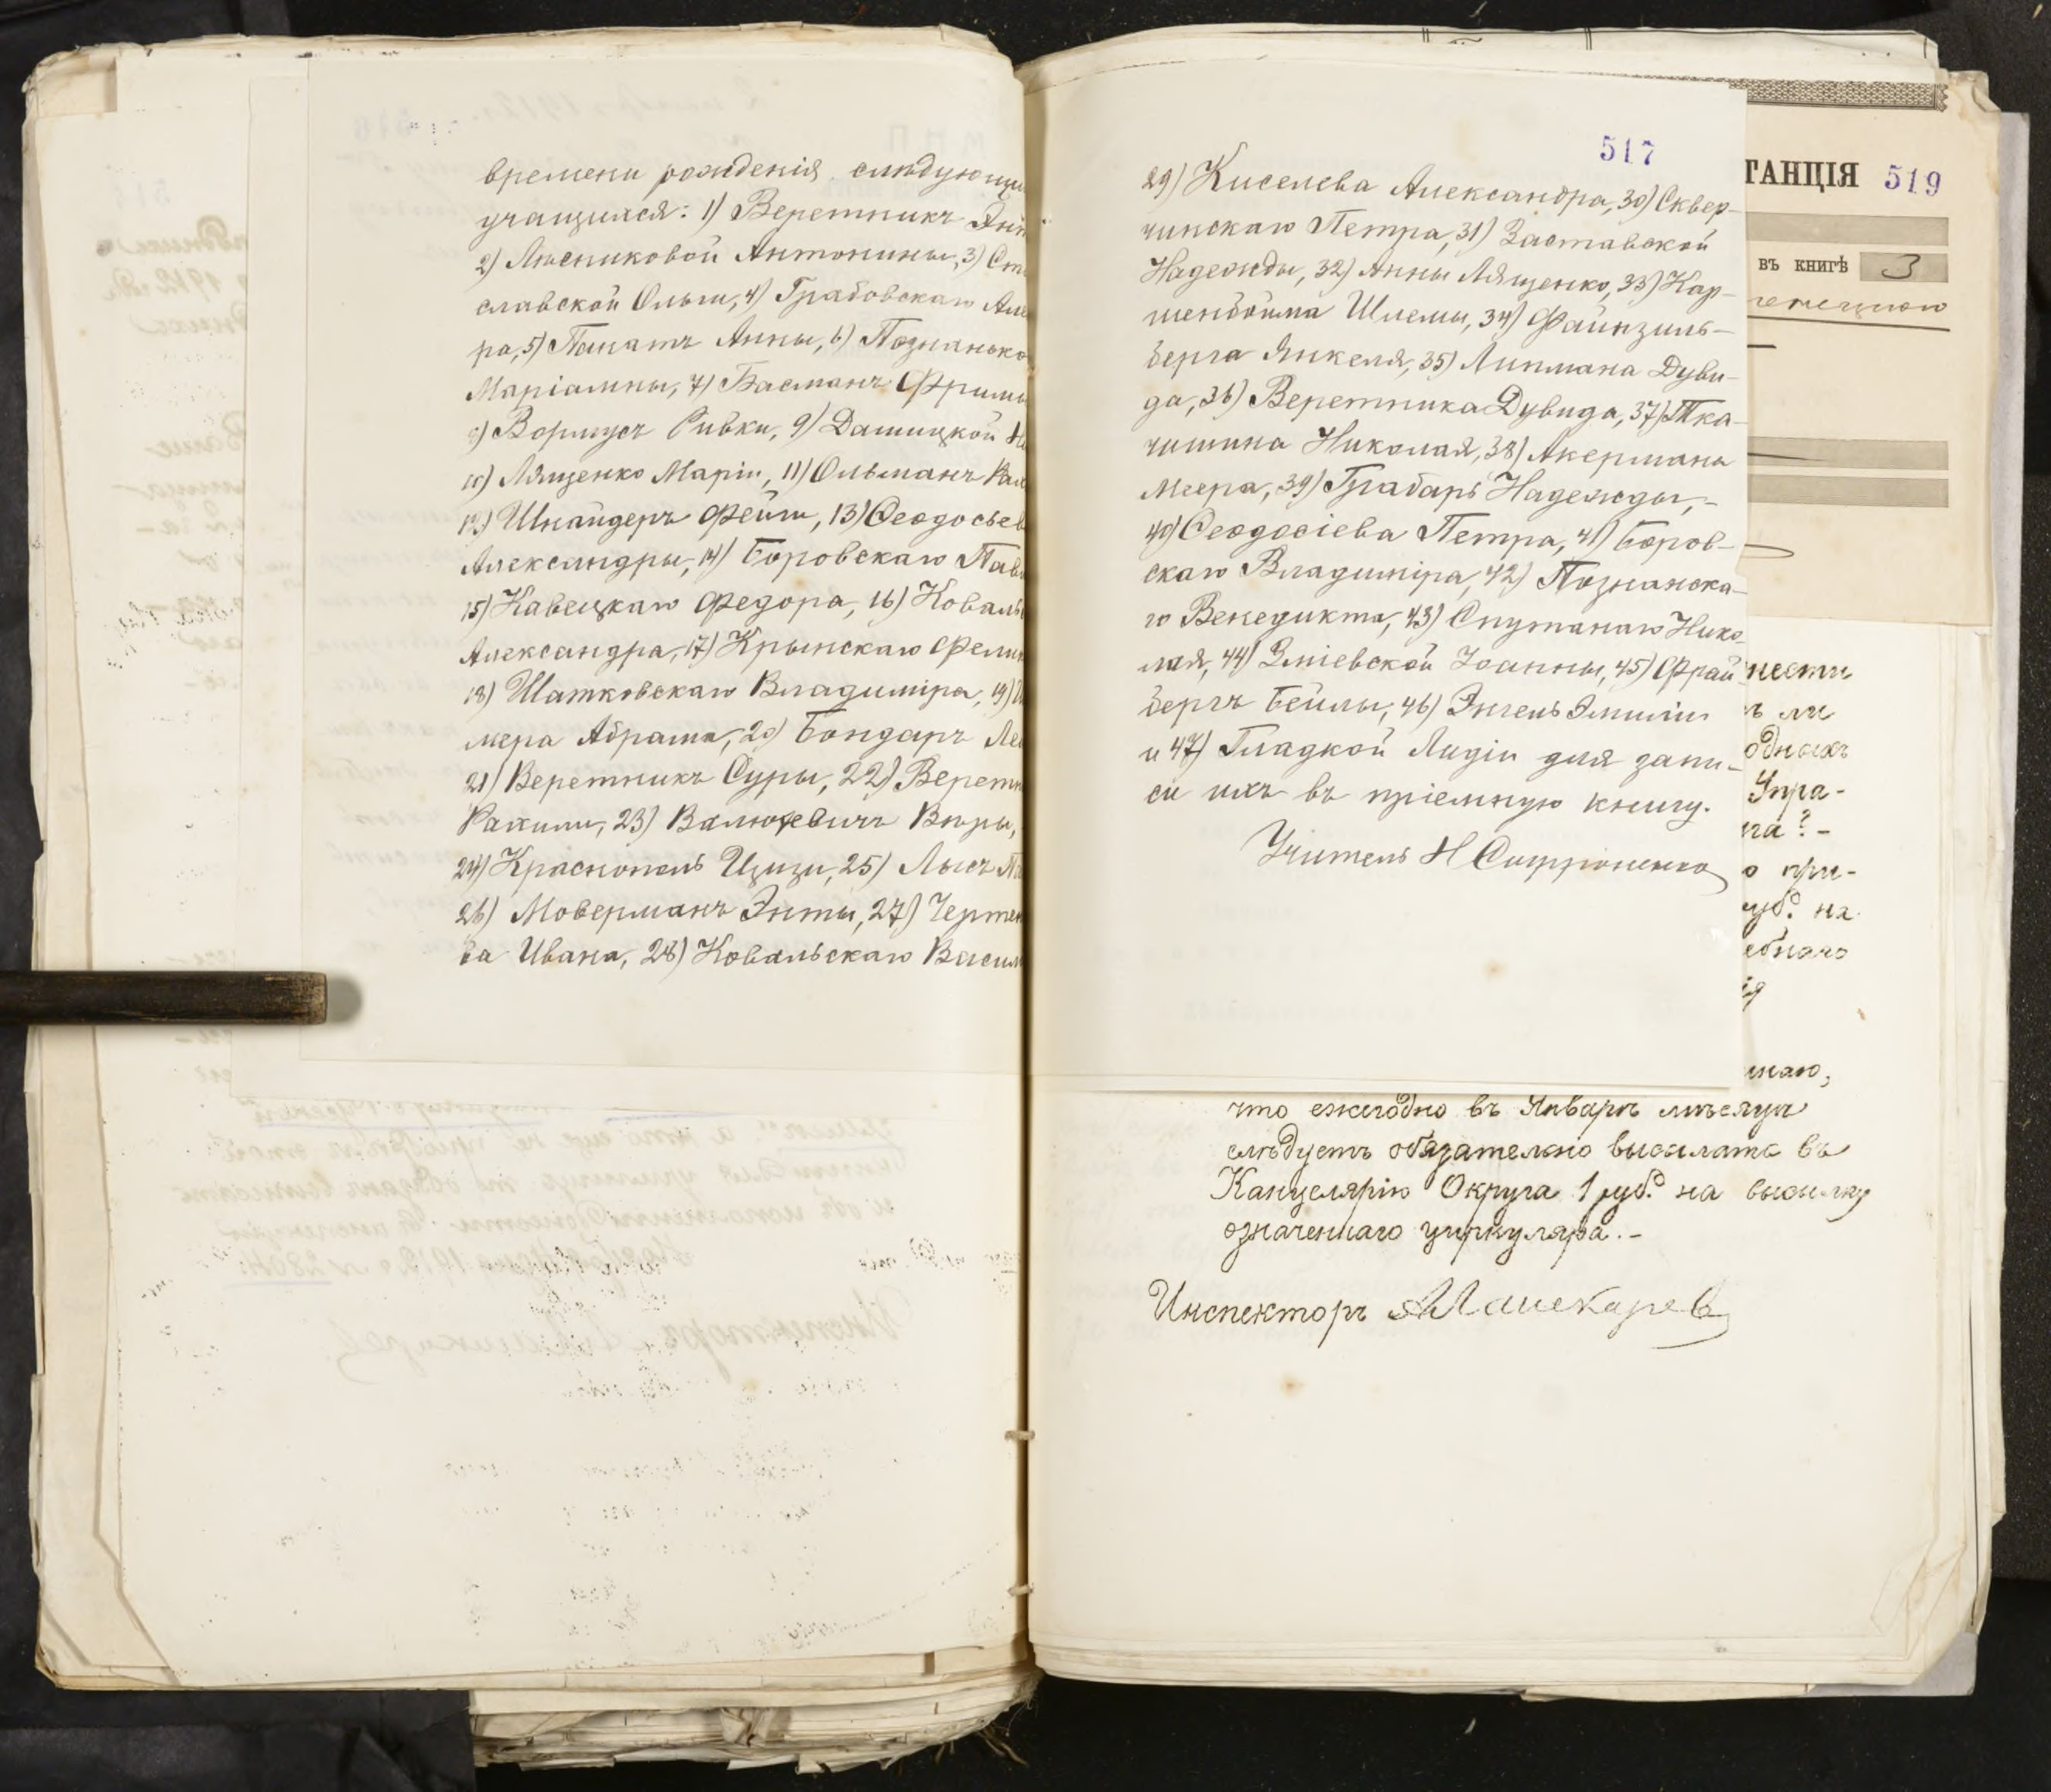 времени рожденія слѣдующи
учащихся: 1) Веретникъ
2) Лѣсниковой Антонины, 3)
славской Ольги, 4) Грабовскаго Але
ра, 5) Анны, 6) Познанско
Маріамны, 7) Басманъ Фримы
8) Воршусъ Ривки, 9) Дашицкой
10) Лященко Маріи, 11) Ольманъ
12) Шнайдеръ Фейги, 13) Феодосьев
Александры, 14) Боровскаго Пав
15) Кавецкаго Федора, 16) Коваль
Александра, 17) Крынскаго Фели
18) Шатковскаго Владиміра, 19)
мера Абрама, 20) Бондаръ
21) Веретникъ Суры, 22) Веретн
Рахили, 23) Валюкевичъ Вѣры,
24) Краснополь 25) Лысъ
26) Моверманъ Энты, 27) Черте
ва Ивана, 28) Ковальскаго Васил
517
29) Киселева Александра, 30) Сквер-
чинскаго Петра, 31) Заставской
Надежды, 32) Анны Лященко, 33) Кар-
шенбойма Шлемы, 34) Файнзиль-
берга Янкеля, 35) Липмана Дуви-
да, 36) Веретника Дувида, 37) Тка-
чишина Николая, 38) Акермана
Меера, 39) Грабарь Надежды, -
40) Феодосіева Петра, 41) Боров-
скаго Владиміра, 42) Познанска-
го Венедикта, 43) Спутанаго Нико-
лая, 44) Зміевской Іоанны, 45) Фрай-
бергъ Бейлы, 46) Энгель Эмиліи
и 47) Гладкой Лидіи для запи-
си ихъ въ пріемную книгу.
Учитель Н Сафроненко
ТАНЦІЯ 519
въ книгѣ 3
ности
ли
однихъ
Упра-
га? -
при-
руб. на
ебнаго
что ежегодно въ Январѣ мѣсяцѣ
слѣдуетъ обязательно высылать въ
Канцелярію Округа 1 руб. на высылку
означеннаго циркуляра. -
Инспекторъ